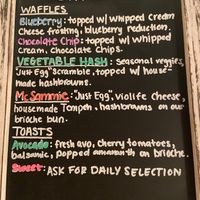 WAFFLES
Blueberry: topped w/ whipped cream
cheese frosting, blueberry reduction.
Chocolate Chip: topped w/ whipped
cream, chocolate chips.
VEGETABLE HASH: seasonal veggies,
"Just Egg" scramble, topped w/ house
made hashbrowns.
Mc Sammie: "Just Egg", violife cheese,
housemade Tempeh, hashbrowns on our
brioche bun.
TOASTS
Avocado: fresh avo, cherry tomatoes,
balsamic, popped amaranth on brioche.
Sweet: ASK FOR DAILY SELECTION